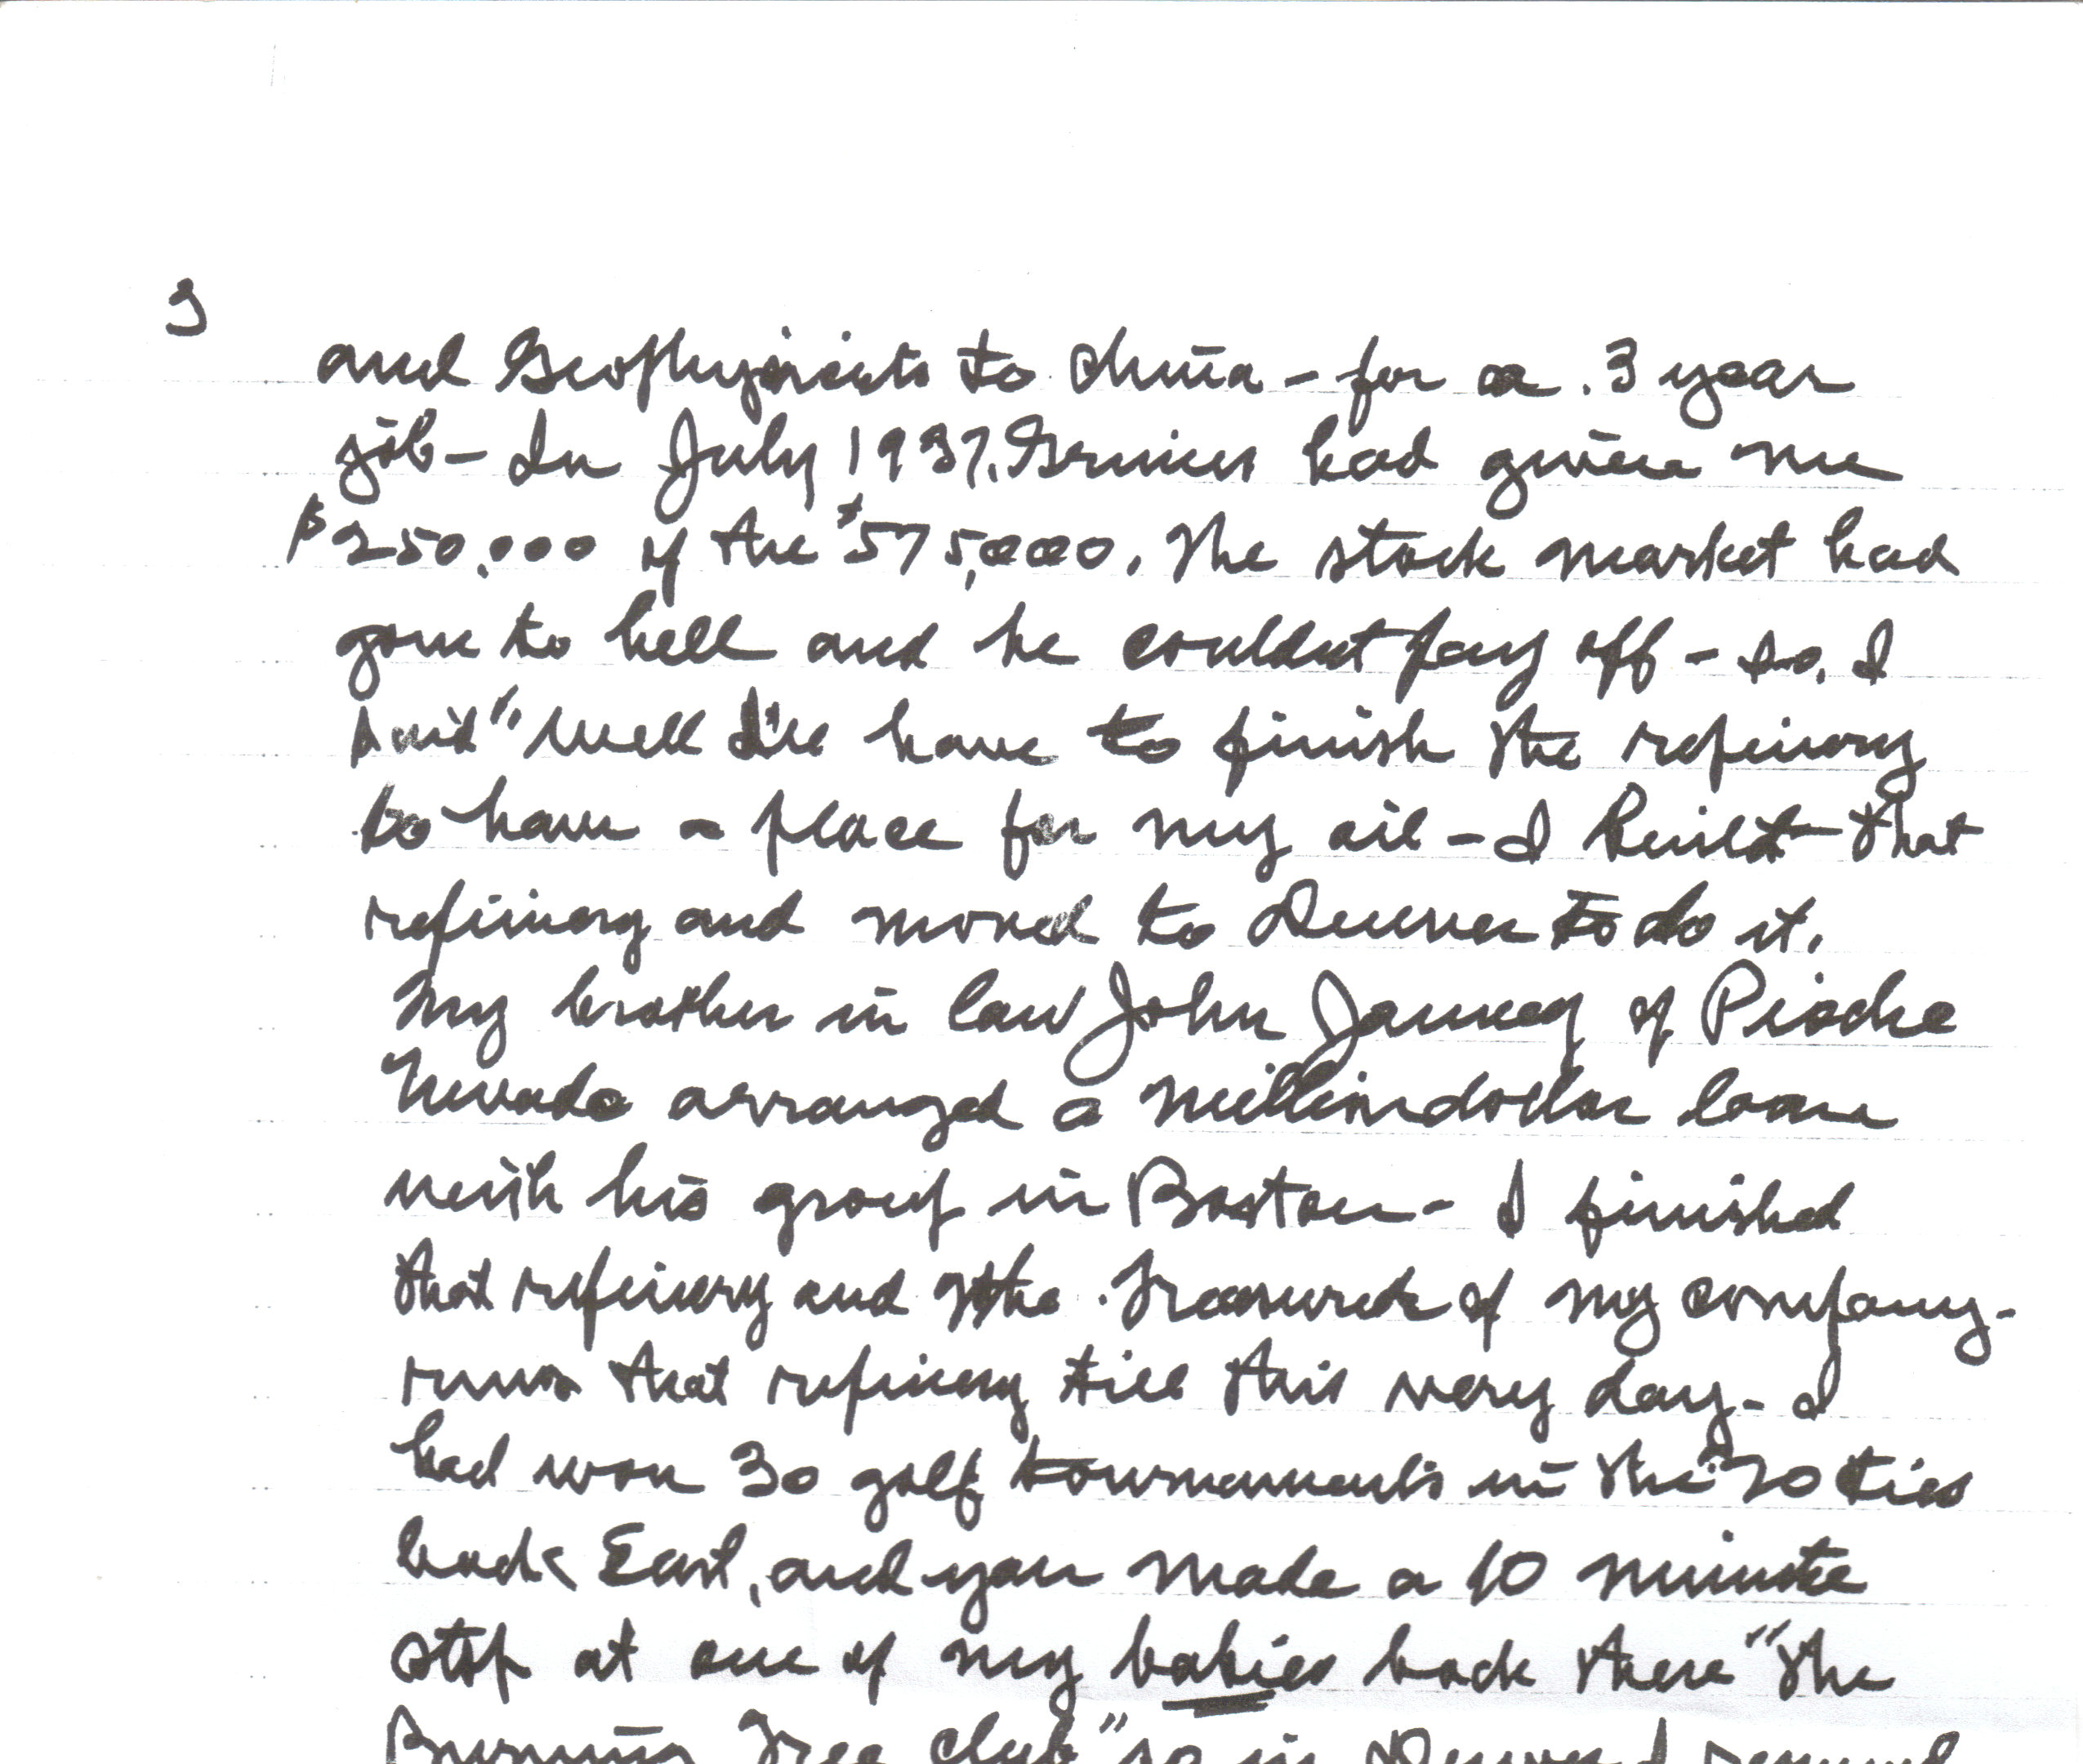 3
and Geophysicists to China - for a . 3 year
job - In July 1937. had given me
$250,000 of the $575,000. The stock market had
gone to hell and he couldnt pay off - so, I
said "Well I'll have to finish the refinery
to have a place for my oil - I built that
refinery and moved to Denver to do it.
My brother in law John Janney of Pioche
Nevada arranged a million dollar loan
with his group in Boston - I finished
that refinery and the Treasurer of my company -
runs that refinery till this very day - I
had won 30 golf tournaments in the 20 ties
back East, and you made a 10 minute
stop at one of my babies back there "The
Burning Tree Club" so in Denver I